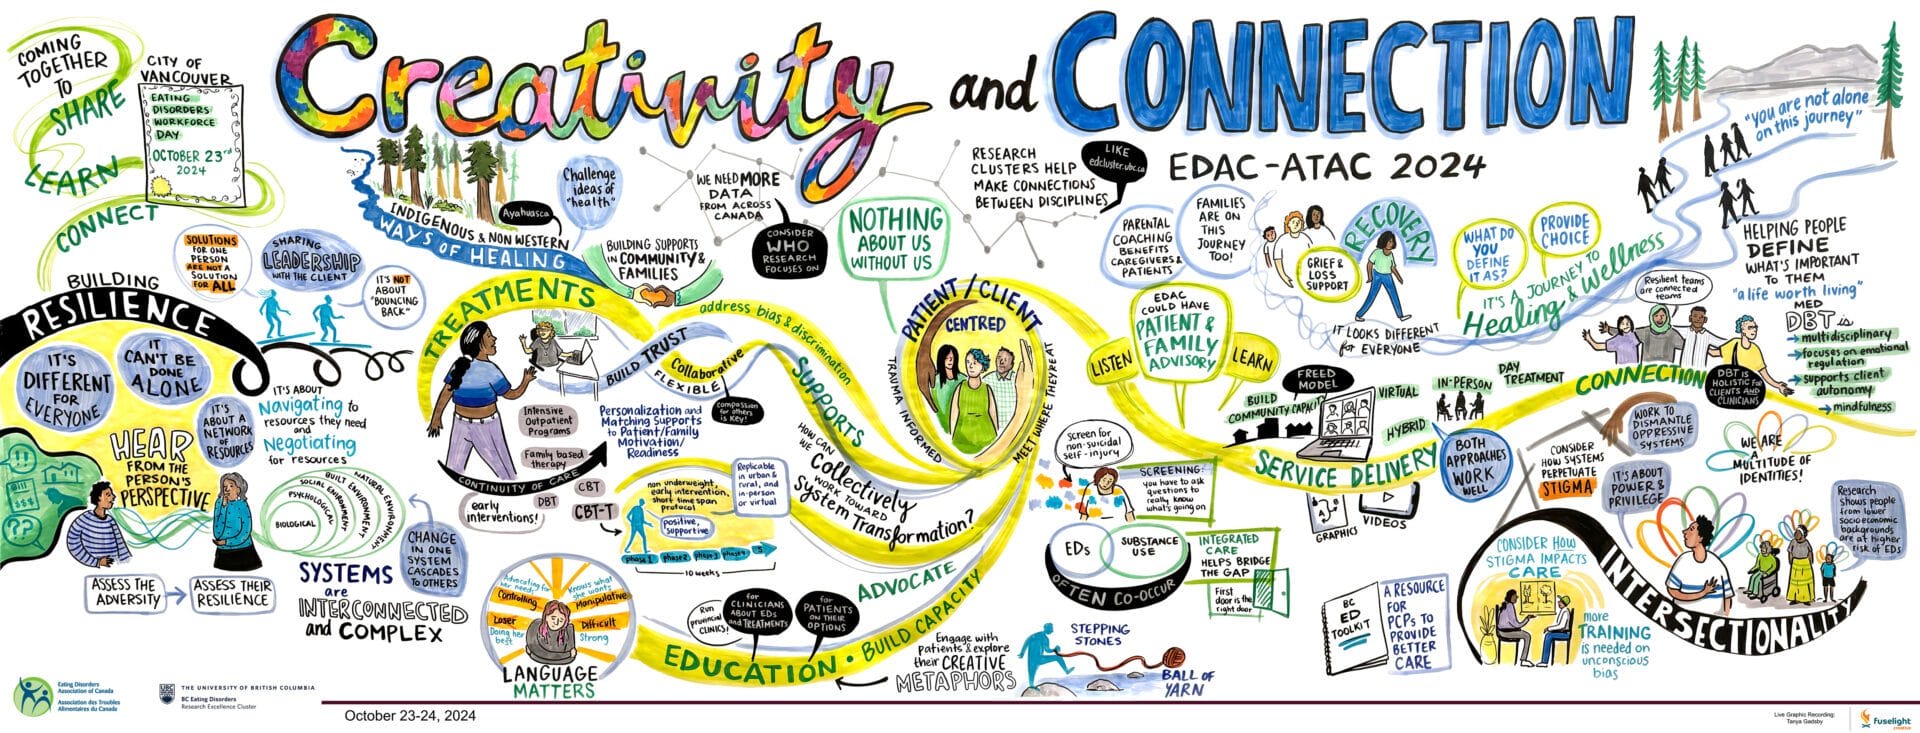 COMING
TOGETHER
TO
SHARE
LEARN
CONNECT
CITY OF
VANCOUVER
EATING
DISORDERS
WORKFORCE
DAY
OCTOBER 23rd
2024
Creativity and CONNECTION
EDAC-ATAC 2024
BUILDING
RESILIENCE
SOLUTIONS
FOR ONE
PERSON
ARE NOT A
SOLUTION
FOR ALL
SHARING
LEADERSHIP
WITH THE CLIENT
IT'S NOT
ABOUT
"BOUNCING
BACK"
IT'S
DIFFERENT
FOR
EVERYONE
IT
CAN'T BE
DONE
ALONE
IT'S
ABOUT A
NETWORK
OF
RESOURCES
HEAR
FROM THE
PERSON'S
PERSPECTIVE
!!
$$$
??
ASSESS THE
ADVERSITY
ASSESS THEIR
RESILIENCE
IT'S ABOUT
Navigating to
resources they need
and
Negotiating
for resources
BIOLOGICAL
PSYCHOLOGICAL
SOCIAL ENVIRONMENT
BUILT ENVIRONMENT
NATURAL ENVIRONMENT
CHANGE
IN ONE
SYSTEM
CASCADES
TO OTHERS
SYSTEMS
are
INTERCONNECTED
and COMPLEX
INDIGENOUS & NON WESTERN
WAYS OF HEALING
Ayahuasca
Challenge
ideas of
"health"
BUILDING SUPPORTS
IN COMMUNITY &
FAMILIES
TREATMENTS
BUILD TRUST
Collaborative
FLEXIBLE
Compassion
for others
is key!
Intensive
Outpatient
Programs
Family based
therapy
Personalization and
Matching Supports
to Patient/Family
Motivation/
Readiness
CONTINUITY OF CARE
early
interventions!
DBT
CBT
CBT-T
non underweight,
early intervention,
short time span
protocol
positive,
supportive
Replicable
in urban &
rural, and
in-person
or virtual
phase 1
phase 2
phase 3
phase 4
5
10 weeks
Advocating for
her needs
Knows what
she wants
Controlling
Manipulative
Loser
Difficult
Doing her
best
Strong
LANGUAGE
MATTERS
WE NEED MORE
DATA
FROM ACROSS
CANADA
CONSIDER
WHO
RESEARCH
FOCUSES ON
NOTHING
ABOUT US
WITHOUT US
RESEARCH
CLUSTERS HELP
MAKE CONNECTIONS
BETWEEN DISCIPLINES
LIKE
edcluster.ubc.ca
address bias & discrimination
SUPPORTS
HOW CAN
WE Collectively
WORK TOWARD
System Transformation?
PATIENT / CLIENT
CENTRED
TRAUMA INFORMED
MEET WHERE THEY'RE AT
ADVOCATE
EDUCATION • BUILD CAPACITY
Run
provincial
CLINICS!
for
CLINICIANS
ABOUT EDs
and TREATMENTS
for
PATIENTS
ON THEIR
OPTIONS
Engage with
patients & explore
their CREATIVE
METAPHORS
STEPPING
STONES
BALL OF
YARN
PARENTAL
COACHING
BENEFITS
CAREGIVERS &
PATIENTS
FAMILIES
ARE ON
THIS
JOURNEY
TOO!
GRIEF &
LOSS
SUPPORT
RECOVERY
IT LOOKS DIFFERENT
for EVERYONE
LISTEN
EDAC
COULD HAVE
PATIENT &
FAMILY
ADVISORY
LEARN
WHAT DO
YOU
DEFINE
IT AS?
PROVIDE
CHOICE
IT'S A JOURNEY TO
Healing & Wellness
"you are not alone
on this journey"
HELPING PEOPLE
DEFINE
WHAT'S IMPORTANT
TO THEM
"a life worth living"
BUILD
COMMUNITY CAPACITY
FREED
MODEL
VIRTUAL
HYBRID
IN-PERSON
DAY
TREATMENT
SERVICE DELIVERY
BOTH
APPROACHES
WORK
WELL
GRAPHICS
VIDEOS
screen for
non-suicidal
self-injury
SCREENING:
you have to ask
questions to
really know
what's going on
EDs
SUBSTANCE
USE
OFTEN CO-OCCUR
INTEGRATED
CARE
HELPS BRIDGE
THE GAP
First
door is the
right door
BC
ED
TOOLKIT
A RESOURCE
FOR
PCPs TO
PROVIDE
BETTER
CARE
Resilient teams
are connected
teams
CONNECTION
DBT IS
HOLISTIC for
CLIENTS AND
CLINICIANS
MED
DBT is
multidisciplinary
focuses on emotional
regulation
supports client
autonomy
mindfulness
WORK TO
DISMANTLE
OPPRESSIVE
SYSTEMS
CONSIDER
HOW SYSTEMS
PERPETUATE
STIGMA
IT'S ABOUT
POWER &
PRIVILEGE
WE ARE
A
MULTITUDE OF
IDENTITIES!
Research
shows people
from lower
socioeconomic
backgrounds
are at higher
risk of EDs
CONSIDER HOW
STIGMA IMPACTS
CARE
more
TRAINING
is needed on
unconscious
bias
INTERSECTIONALITY
Eating Disorders
Association of Canada
Association des Troubles
Alimentaires du Canada
UBC
THE UNIVERSITY OF BRITISH COLUMBIA
BC Eating Disorders
Research Excellence Cluster
October 23-24, 2024
Live Graphic Recording:
Tanya Gadsby
fuselight
creative